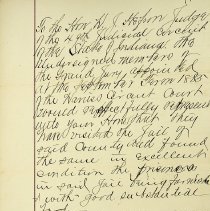 To the Hon. W. J. Hopson Judge
of the 47 Judicial Circuit
of the State of Indiana. The
undersigned members of
the Grand Jury,
at the Term 1885
of the Court
would respectfully
unto Your Honor that they
have visited the Jail of
said County and found
the same in excellent
condition the prisoners
in said Jail being furnished
with good substantial